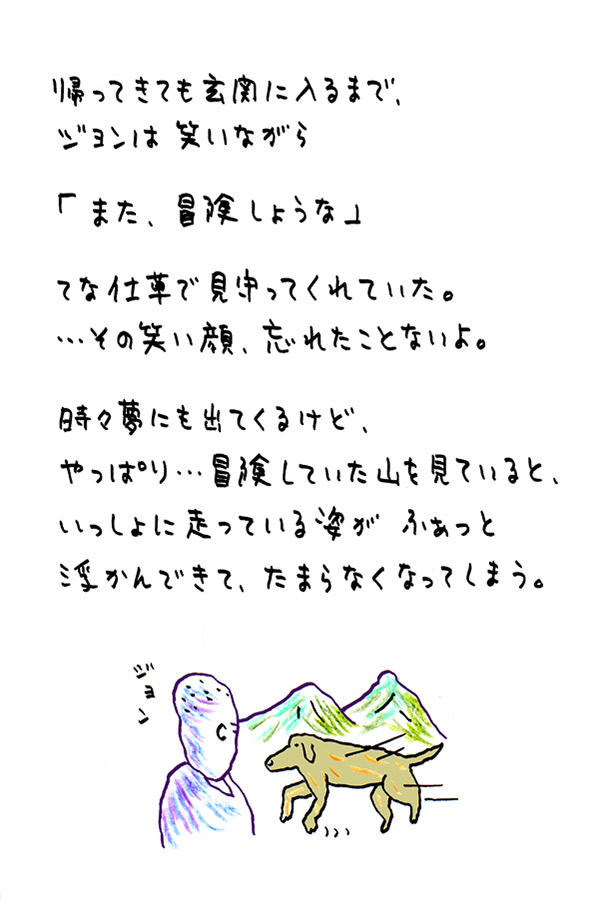 帰ってきても玄関に入るまで、
ジョンは 笑いながら
「また、冒険しような」
てな仕草で見守ってくれていた。
…その笑い顔、忘れたことないよ。
時々夢にも出てくるけど、
やっぱり…冒険していた山を見ていると、
いっしょに走っている姿が ふぁっと
浮かんできて、たまらなくなってしまう。
ジョン